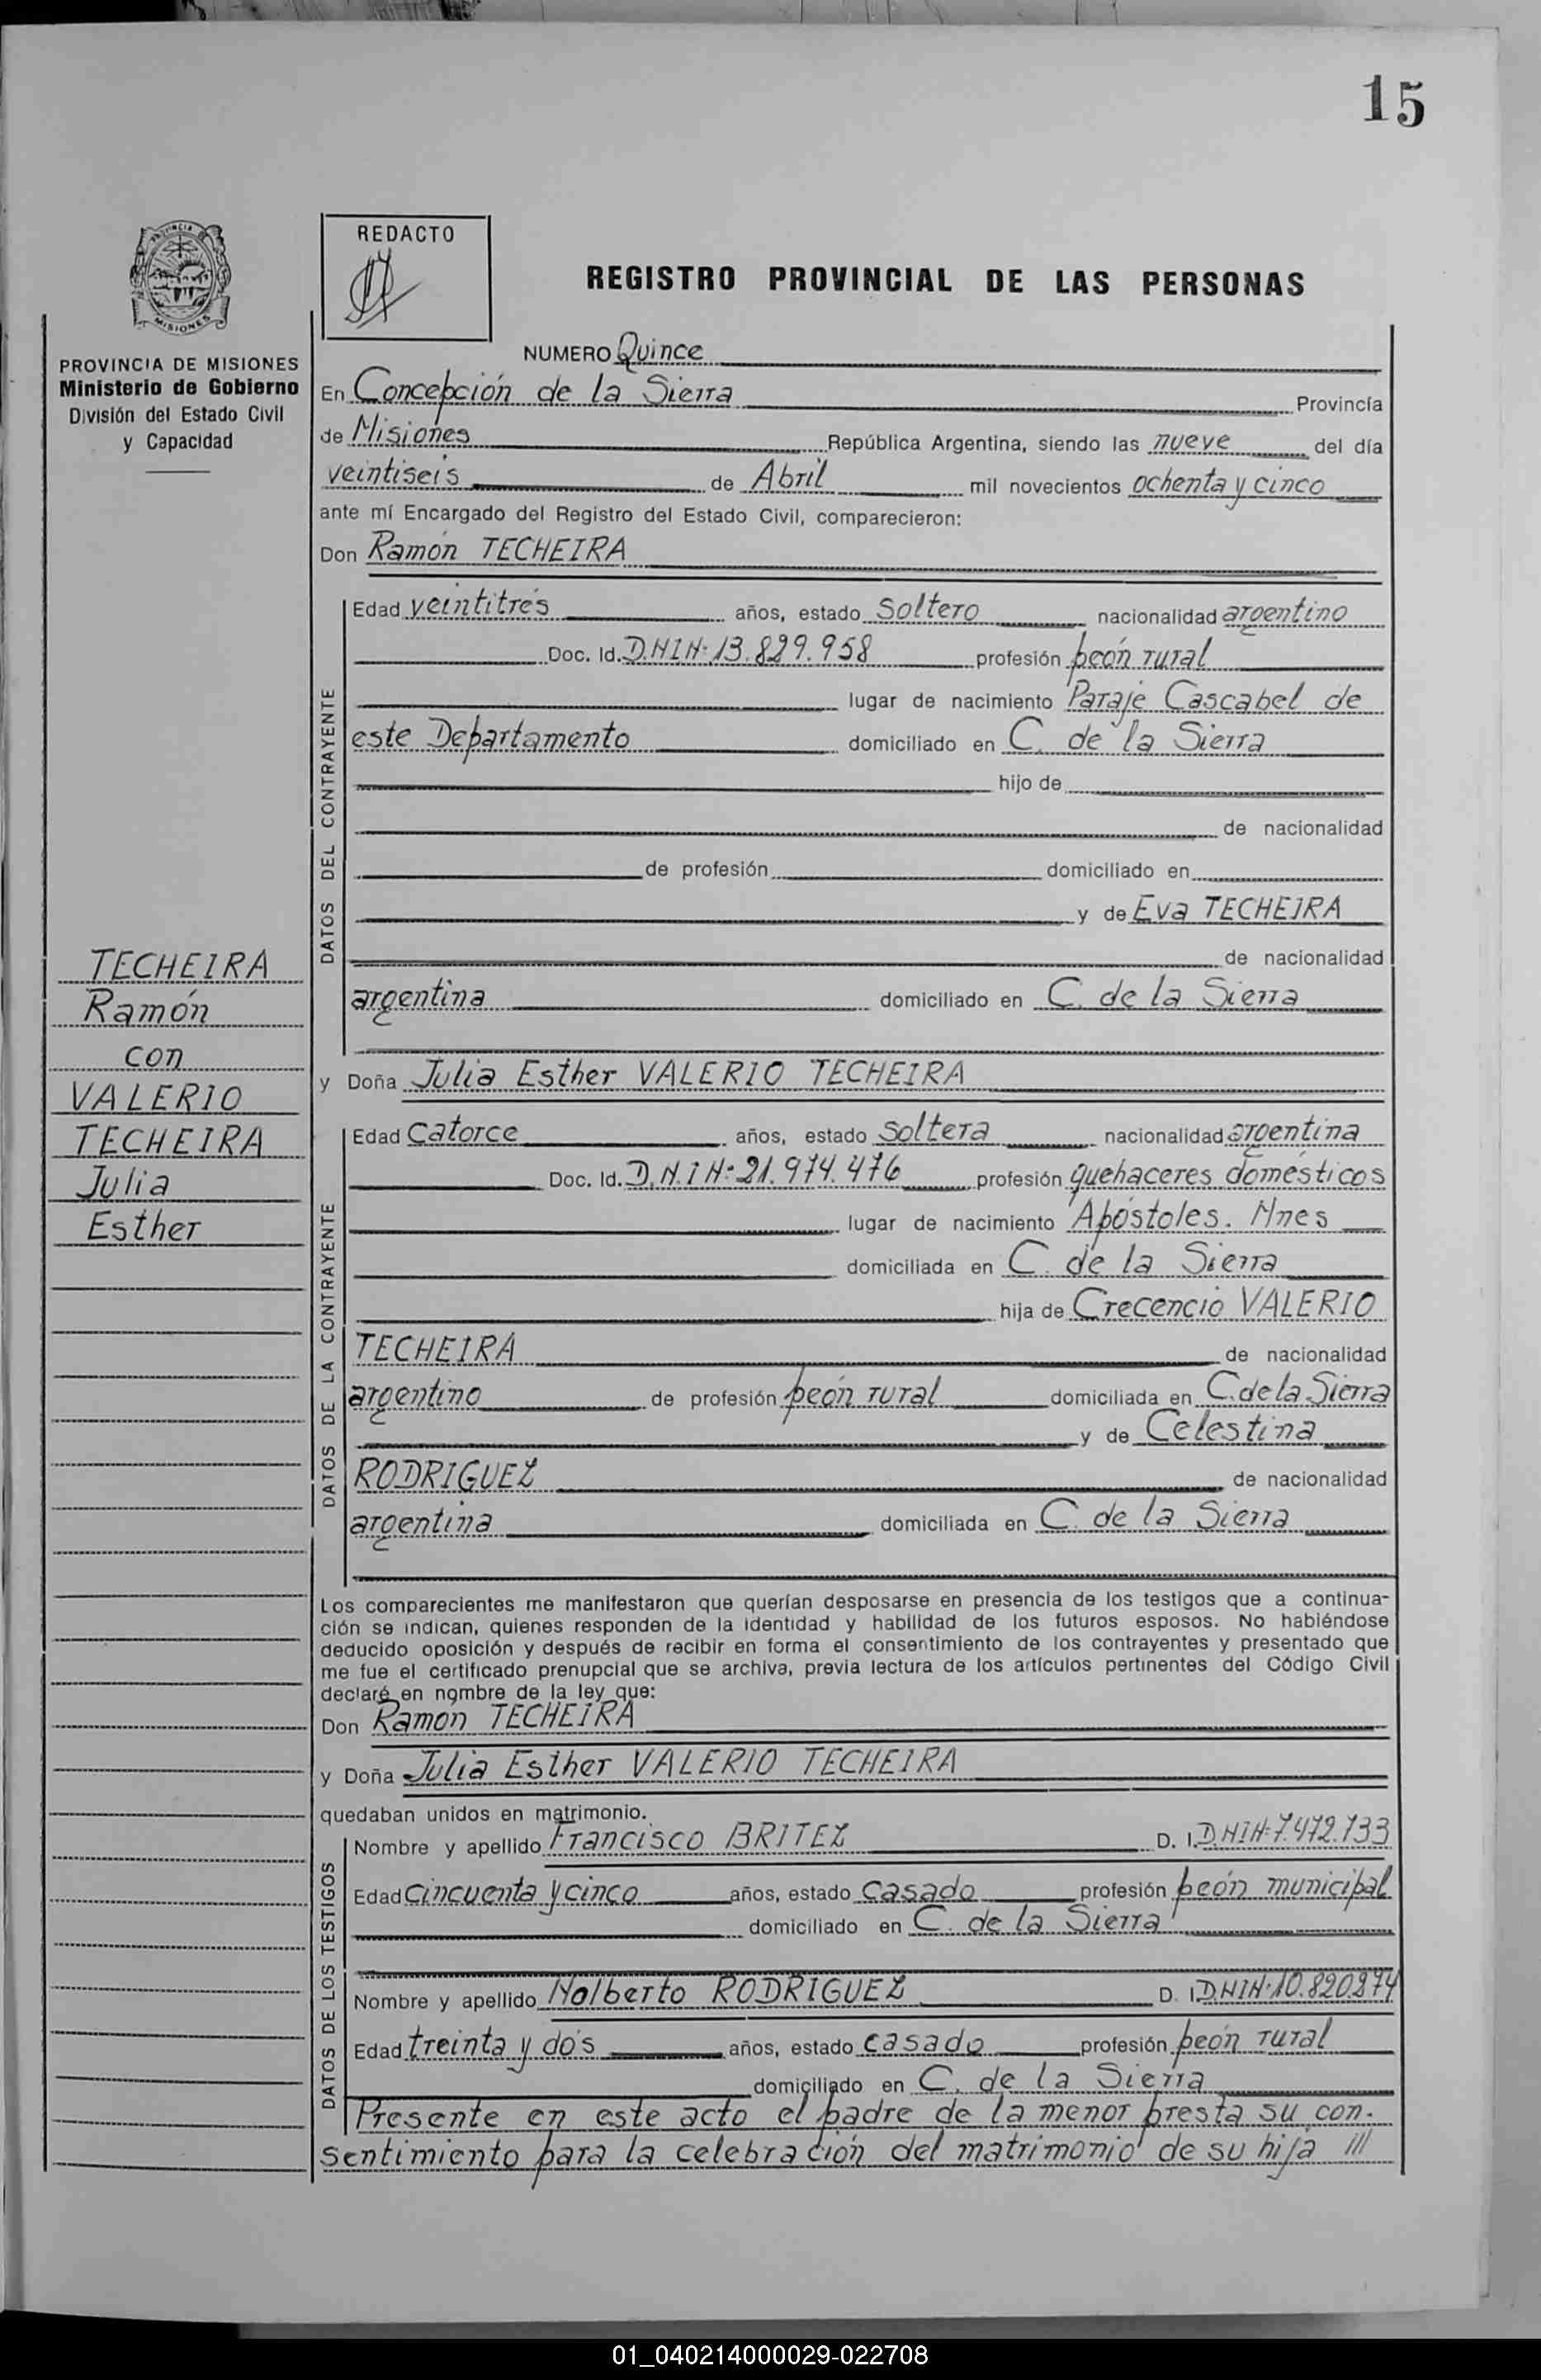 15
REDACTO
REGISTRO PROVINCIAL DE LAS PERSONAS
PROVINCIA DE MISIONES
Ministerio de Gobierno
División del Estado Civil
y Capacidad
NUMERO Quince
En Concepción de la Sierra Provincia
de Misiones República Argentina, siendo las nueve del día
veintiseis de Abril mil novecientos ochenta y cinco
ante mí Encargado del Registro del Estado Civil, comparecieron:
Don Ramón TECHEIRA
DATOS DEL CONTRAYENTE
Edad veintitrés años, estado soltero nacionalidad argentino
Doc. Id. D.N.I.N: 13.829.958 profesión peón rural
lugar de nacimiento Paraje Cascabel de
este Departamento domiciliado en C. de la Sierra
hijo de
de nacionalidad
de profesión domiciliado en
y de Eva TECHEIRA
de nacionalidad
argentina domiciliado en C. de la Sierra
TECHEIRA
Ramón
con
VALERIO
TECHEIRA
Julia
Esther
y Doña Julia Esther VALERIO TECHEIRA
DATOS DE LA CONTRAYENTE
Edad Catorce años, estado soltera nacionalidad argentina
Doc. Id. D.N.I N: 21.974.476 profesión quehaceres domésticos
lugar de nacimiento Apóstoles. Mnes
domiciliada en C. de la Sierra
hija de Crecencio VALERIO
TECHEIRA de nacionalidad
argentino de profesión peón rural domiciliada en C. de la Sierra
y de Celestina
RODRIGUEZ de nacionalidad
argentina domiciliada en C. de la Sierra
Los comparecientes me manifestaron que querían desposarse en presencia de los testigos que a continua-
ción se indican, quienes responden de la identidad y habilidad de los futuros esposos. No habiéndose
deducido oposición y después de recibir en forma el consentimiento de los contrayentes y presentado que
me fue el certificado prenupcial que se archiva, previa lectura de los artículos pertinentes del Código Civil
declaré en nombre de la ley que:
Don Ramón TECHEIRA
y Doña Julia Esther VALERIO TECHEIRA
quedaban unidos en matrimonio.
DATOS DE LOS TESTIGOS
Nombre y apellido Francisco BRITEZ D. I. D.N.I.N: 7.472.733
Edad Cincuenta y cinco años, estado Casado profesión peón municipal
domiciliado en C. de la Sierra
Nombre y apellido Nolberto RODRIGUEZ D. I. D.N.I.N: 10.820.274
Edad treinta y dos años, estado casado profesión peón rural
domiciliado en C. de la Sierra
Presente en este acto el padre de la menor presta su con-
sentimiento para la celebración del matrimonio de su hija ///
01_040214000029-022708